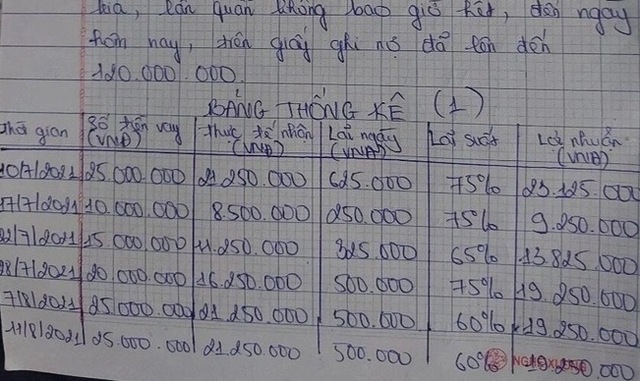 kia, lần quần không bao giờ hết, đến ngay
hôm nay, trên giấy ghi nợ đã lên đến
120.000.000.
BẢNG THỐNG KÊ (1)
Thời gian Số tiền vay (VNĐ) Thực tế nhận (VNĐ) Lãi ngày (VNĐ) Lãi suất Lợi nhuận (VNĐ)
10/7/2021 25.000.000 21.250.000 625.000 75% 23.125.000
17/7/2021 10.000.000 8.500.000 250.000 75% 9.250.000
22/7/2021 15.000.000 11.250.000 325.000 65% 13.825.000
28/7/2021 20.000.000 16.250.000 500.000 75% 19.250.000
7/8/2021 25.000.000 21.250.000 500.000 60% 19.250.000
11/8/2021 25.000.000 21.250.000 500.000 60% 19.250.000